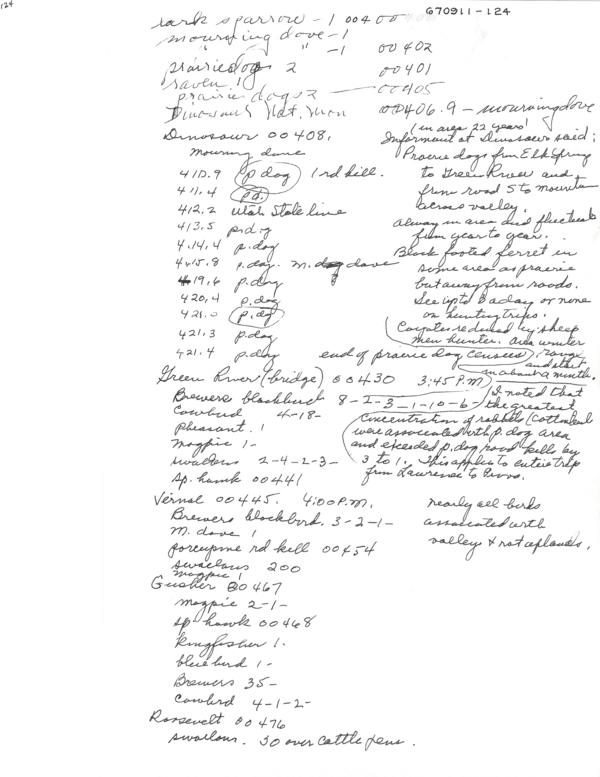 124
670911-124
lark sparrow - 1 00400
mourning dove - 1
" " -1 00402
prairiedog 2 00401
raven 1
prairie dogs 2 — 00405
Dinosaur Nat. Mon 00406.9 - mourning dove
Dinosaur 00408,
mourning dove
410.9 p dog 1 rd kill.
411.4 p.d.
412.2 Utah State line
413.5 p.dog
414.4 p.dog
415.8 p.dog. m. dove
419.6 p.dog
420.4 p.dog
421.0 p.dog
421.3 p.dog
421.4 p.dog end of prairie dog census
(in area 22 years)
Informant at Dinosaur said;
Prairie dogs from Elk Spring
to Green River and
from road S to mountain
across valley.
Always in area and fluctuate
from year to year.
Black footed ferret in
same area as prairie
but away from roads.
See up to 3 a day or none
on hunting trips.
Coyotes reduced by sheep
men hunter. Area winter
range
and start
in about a month.
Green River (bridge) 00430 3:45 P.M.
Brewers blackbird 8-2-3-1-10-6-
Cowbird 4-18-
Pheasant. 1
magpie 1-
swallows 2-4-2-3-
sp. hawk 00441
I noted that
the greatest
concentration of rabbits (cottontail
were associated with p. dog area
and exceeded p. dog road kills by
3 to 1. This applies to entire trip
from Lawrence to Provo.
Vernal 00445. 4:00 P.M.
Brewers blackbird. 3-2-1-
M. dove 1
porcupine rd kill 00454
swallows 200
magpie 1
nearly all birds
associated with
valleys & not uplands.
Gusher 00467
magpie 2-1-
sp hawk 00468
kingfisher 1.
bluebird 1-
Brewers 35-
Cowbird 4-1-2-
Roosevelt 00476
swallows. 30 over cattle pens.